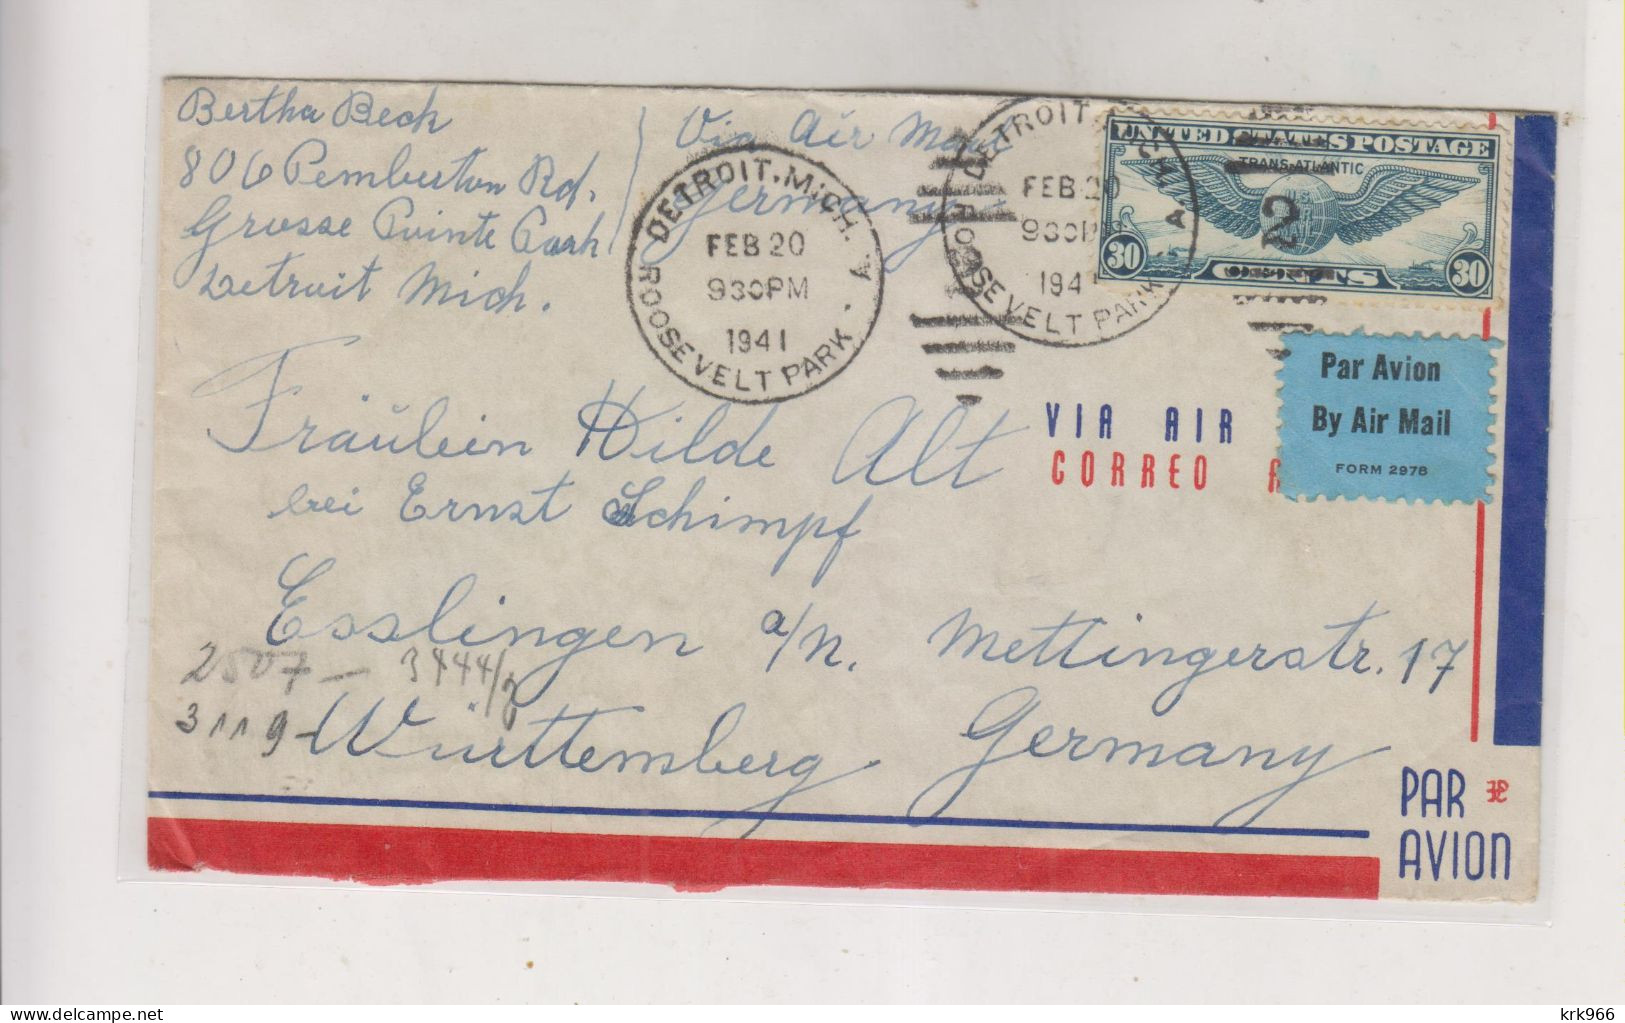 Bertha Beck
806 Pemberton Rd.
Grosse Pointe Park
Detroit Mich.
Via Air Mail
Germany
DETROIT, MICH. A.
FEB 20
930PM
1941
ROOSEVELT PARK
DETROIT, MICH. A
FEB 20
930P
194
ROOSEVELT PARK
UNITED STATES POSTAGE
TRANS-ATLANTIC
2
30 CENTS 30
Par Avion
By Air Mail
FORM 2978
VIA AIR
CORREO A
Fräulein Hilde Alt
bei Ernst Schimpf
Esslingen a/N. Mettingerstr. 17
Württemberg. Germany
2507 — 3444/
3119 -
PAR
AVION
krk966